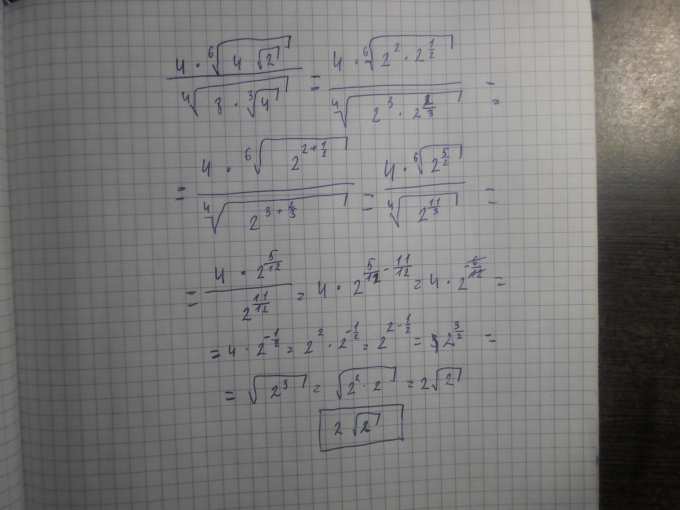 (4 · ⁶√(4 √2)) / ⁴√(8 · ³√4) = (4 · ⁶√(2² · 2^(1/2))) / ⁴√(2³ · 2^(2/3)) =
= (4 · ⁶√(2^(2+1/2))) / ⁴√(2^(3+2/3)) = (4 · ⁶√(2^(5/2))) / ⁴√(2^(11/3)) =
= (4 · 2^(5/12)) / 2^(11/12) = 4 · 2^(5/12 - 11/12) = 4 · 2 =
= 4 · 2^(-1/2) = 2² · 2^(-1/2) = 2^(2-1/2) = 2^(3/2) =
= √(2³) = √(2² · 2) = 2√2
2√2